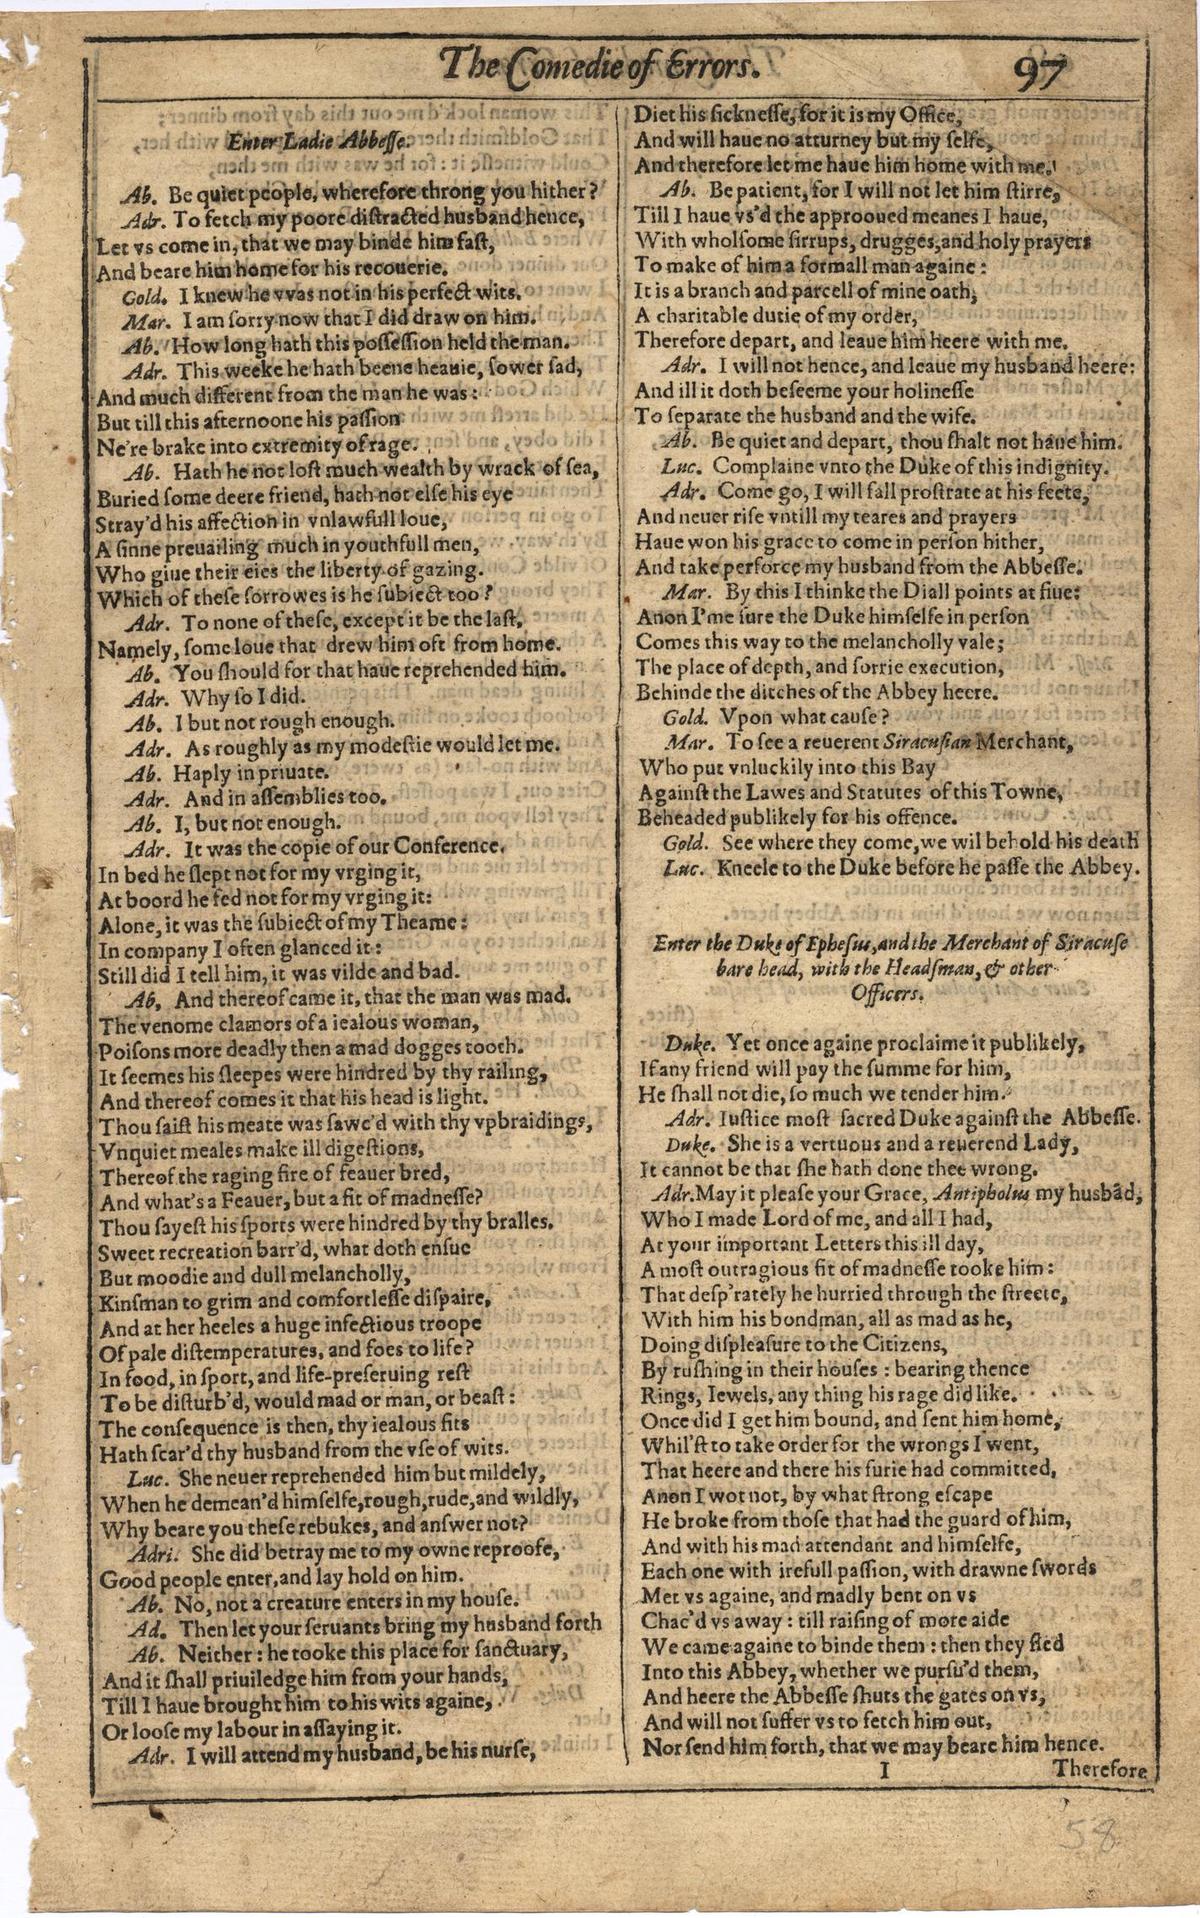 The Comedie of Errors. 97
Enter Ladie Abbesse.
Ab. Be quiet people, wherefore throng you hither?
Adr. To fetch my poore distracted husband hence,
Let vs come in, that we may binde him fast,
And beare him home for his recouerie.
Gold. I knew he vvas not in his perfect wits.
Mar. I am sorry now that I did draw on him.
Ab. How long hath this possession held the man.
Adr. This weeke he hath beene heauie, sower sad,
And much different from the man he was:
But till this afternoone his passion
Ne're brake into extremity of rage.
Ab. Hath he not lost much wealth by wrack of sea,
Buried some deere friend, hath not else his eye
Stray'd his affection in vnlawfull loue,
A sinne preuailing much in youthfull men,
Who giue their eies the liberty of gazing.
Which of these sorrowes is he subiect too?
Adr. To none of these, except it be the last,
Namely, some loue that drew him oft from home.
Ab. You should for that haue reprehended him.
Adr. Why so I did.
Ab. I but not rough enough.
Adr. As roughly as my modestie would let me.
Ab. Haply in priuate.
Adr. And in assemblies too.
Ab. I, but not enough.
Adr. It was the copie of our Conference.
In bed he slept not for my vrging it,
At boord he fed not for my vrging it:
Alone, it was the subiect of my Theame:
In company I often glanced it:
Still did I tell him, it was vilde and bad.
Ab, And thereof came it, that the man was mad.
The venome clamors of a iealous woman,
Poisons more deadly then a mad dogges tooth.
It seemes his sleepes were hindred by thy railing,
And thereof comes it that his head is light.
Thou saist his meate was sawc'd with thy vpbraidings,
Vnquiet meales make ill digestions,
Thereof the raging fire of feauer bred,
And what's a Feauer, but a fit of madnesse?
Thou sayest his sports were hindred by thy bralles.
Sweet recreation barr'd, what doth ensue
But moodie and dull melancholly,
Kinsman to grim and comfortlesse dispaire,
And at her heeles a huge infectious troope
Of pale distemperatures, and foes to life?
In food, in sport, and life-preseruing rest
To be disturb'd, would mad or man, or beast:
The consequence is then, thy iealous fits
Hath scar'd thy husband from the vse of wits.
Luc. She neuer reprehended him but mildely,
When he demean'd himselfe, rough, rude, and wildly,
Why beare you these rebukes, and answer not?
Adri. She did betray me to my owne reproofe,
Good people enter, and lay hold on him.
Ab. No, not a creature enters in my house.
Ad. Then let your seruants bring my husband forth
Ab. Neither: he tooke this place for sanctuary,
And it shall priuiledge him from your hands,
Till I haue brought him to his wits againe,
Or loose my labour in assaying it.
Adr. I will attend my husband, be his nurse,
Diet his sicknesse, for it is my Office,
And will haue no atturney but my selfe,
And therefore let me haue him home with me.
Ab. Be patient, for I will not let him stirre,
Till I haue vs'd the approoued meanes I haue,
With wholsome sirrups, drugges, and holy prayers
To make of him a formall man againe:
It is a branch and parcell of mine oath,
A charitable dutie of my order,
Therefore depart, and leaue him heere with me.
Adr. I will not hence, and leaue my husband heere:
And ill it doth beseeme your holinesse
To separate the husband and the wife.
Ab. Be quiet and depart, thou shalt not haue him.
Luc. Complaine vnto the Duke of this indignity.
Adr. Come go, I will fall prostrate at his feete,
And neuer rise vntill my teares and prayers
Haue won his grace to come in person hither,
And take perforce my husband from the Abbesse.
Mar. By this I thinke the Diall points at fiue:
Anon I'me sure the Duke himselfe in person
Comes this way to the melancholly vale;
The place of depth, and sorrie execution,
Behinde the ditches of the Abbey heere.
Gold. Vpon what cause?
Mar. To see a reuerent Siracusian Merchant,
Who put vnluckily into this Bay
Against the Lawes and Statutes of this Towne,
Beheaded publikely for his offence.
Gold. See where they come, we wil behold his death
Luc. Kneele to the Duke before he passe the Abbey.
Enter the Duke of Ephesus, and the Merchant of Siracuse
bare head, with the Headsman, & other
Officers.
Duke. Yet once againe proclaime it publikely,
If any friend will pay the summe for him,
He shall not die, so much we tender him.
Adr. Iustice most sacred Duke against the Abbesse.
Duke. She is a vertuous and a reuerend Lady,
It cannot be that she hath done thee wrong.
Adr. May it please your Grace, Antipholus my husbãd,
Who I made Lord of me, and all I had,
At your important Letters this ill day,
A most outragious fit of madnesse tooke him:
That desp'rately he hurried through the streete,
With him his bondman, all as mad as he,
Doing displeasure to the Citizens,
By rushing in their houses: bearing thence
Rings, Iewels, any thing his rage did like.
Once did I get him bound, and sent him home,
Whil'st to take order for the wrongs I went,
That heere and there his furie had committed,
Anon I wot not, by what strong escape
He broke from those that had the guard of him,
And with his mad attendant and himselfe,
Each one with irefull passion, with drawne swords
Met vs againe, and madly bent on vs
Chac'd vs away: till raising of more aide
We came againe to binde them: then they fled
Into this Abbey, whether we pursu'd them,
And heere the Abbesse shuts the gates on vs,
And will not suffer vs to fetch him out,
Nor send him forth, that we may beare him hence.
I Therefore
58